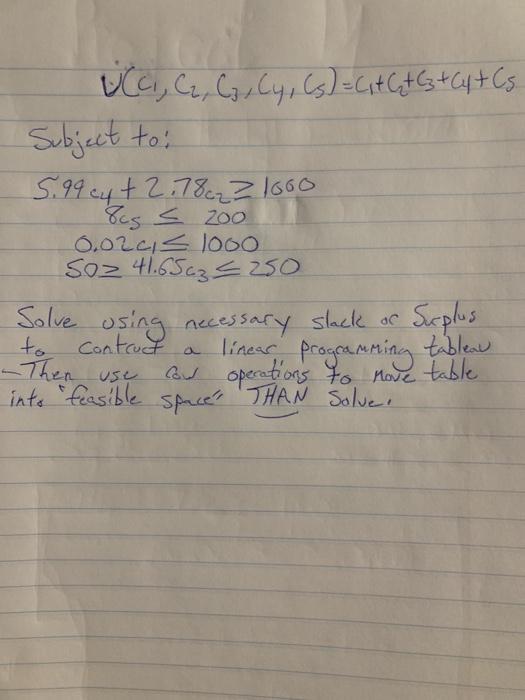 U(C1, C2, C3, C4, C5) = C1+C2+C3+C4+C5
Subject to:
5.99c4 + 2.78c2 ≥ 1000
8c5 ≤ 200
0.02c1 ≤ 1000
50≥ 41.65c3 ≤ 250
Solve using necessary slack or Surplus
to contruct a linear programming tableau
- Then use row operations to move table
into "feasible space" THAN Solve.